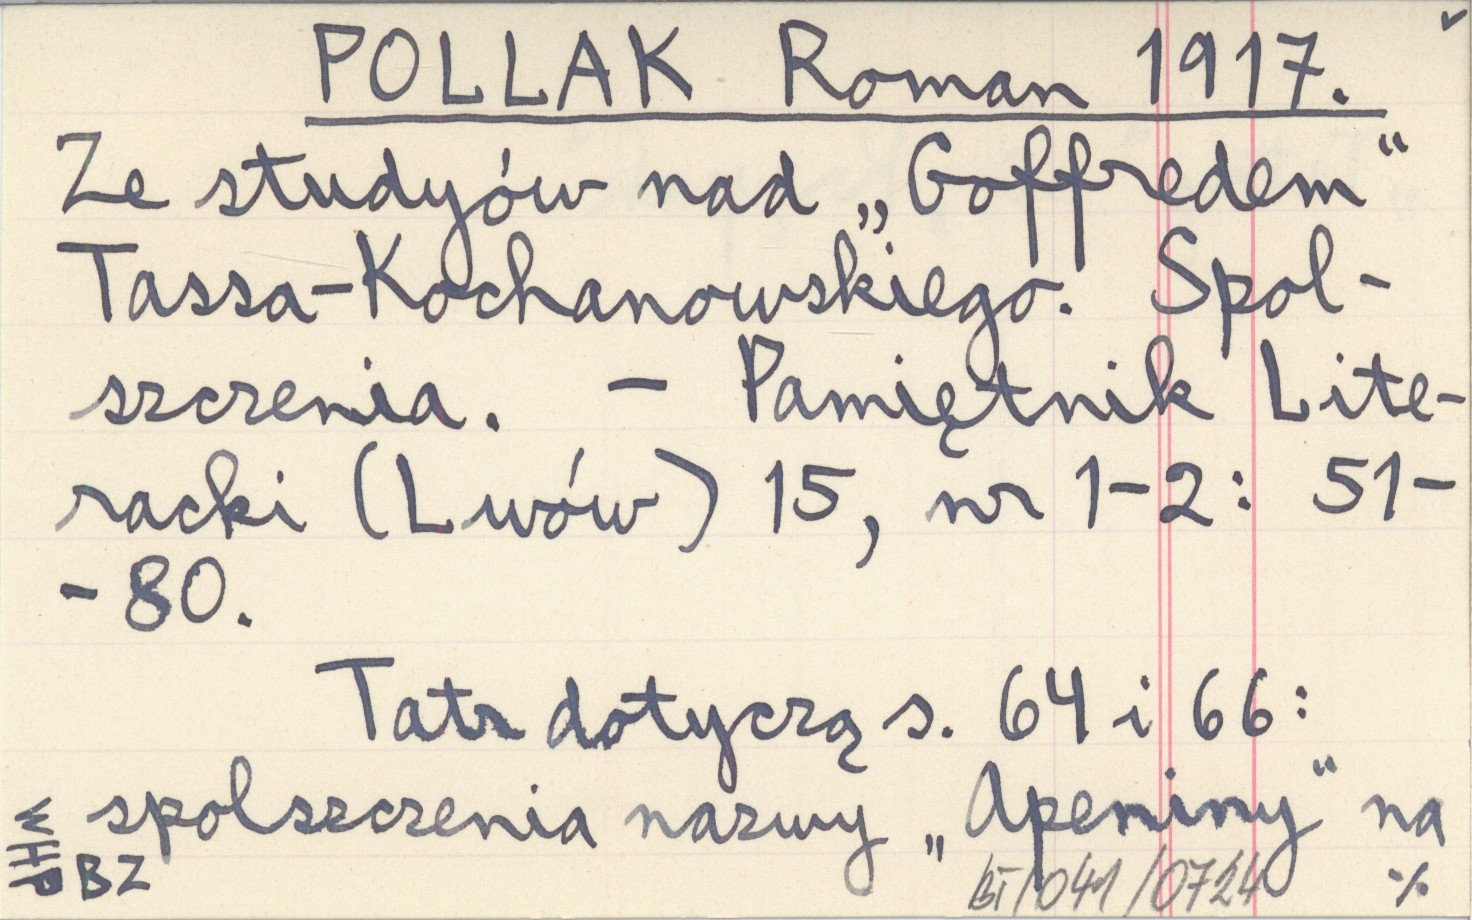 POLLAK Roman 1917.
Ze studyów nad „Goffredem“
Tassa-Kochanowskiego. Spol-
szczenia. - Pamiętnik Lite-
racki (Lwów) 15, nr 1-2: 51-
-80.
Tatr dotyczą s. 64 i 66:
spolszczenia nazwy „Apeniny“ na
WHP BZ
BT/041/0724
./.